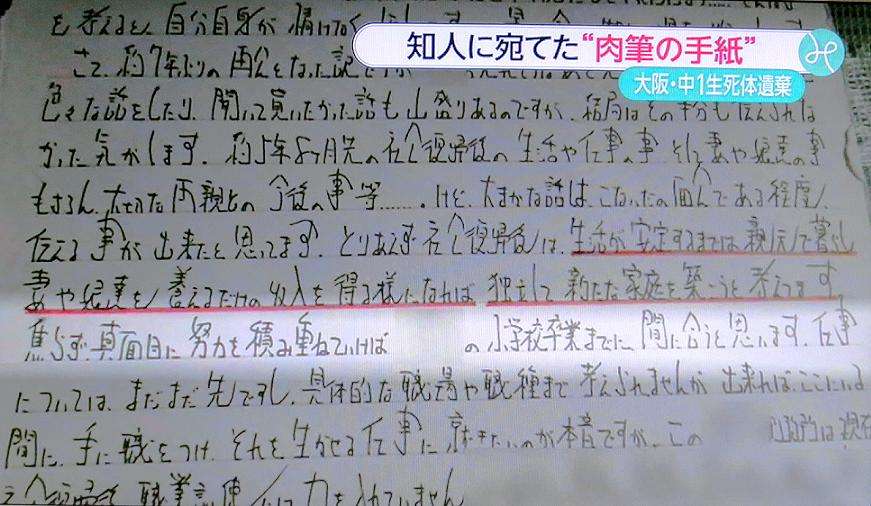 知人に宛てた“肉筆の手紙”
大阪・中1生死体遺棄
を考えると、自分自身が情けなく
さて、約7年ぶりの再会となった訳ですが
色々な話をしたり、聞いて貰いたかった話も山盛りあるのですが、結局はその半分も伝えられな
かった気がします。約5年8ヶ月先の社会復帰後の生活や仕事の事、そして妻や娘達の事
もちろん、大切な両親との今後の事等……。けど、大まかな話は、こないだの面会である程度、
伝える事が出来たと思ってます。とりあえず社会復帰後は、生活が安定するまでは親元で暮らし
妻や娘達を養えるだけの収入を得る様になれば独立して新たな家庭を築こうと考えてます。
焦らず、真面目に努力を積み重ねていけば の小学校卒業までに間に合うと思います。仕事
については、まだまだ先ですし、具体的な職場や職種まで考えられませんが出来れば、ここにいる
間に、手に職をつけ、それを生かせる仕事に就きたいのが本音ですが、この は現在
職業訓練 に力を入れていません